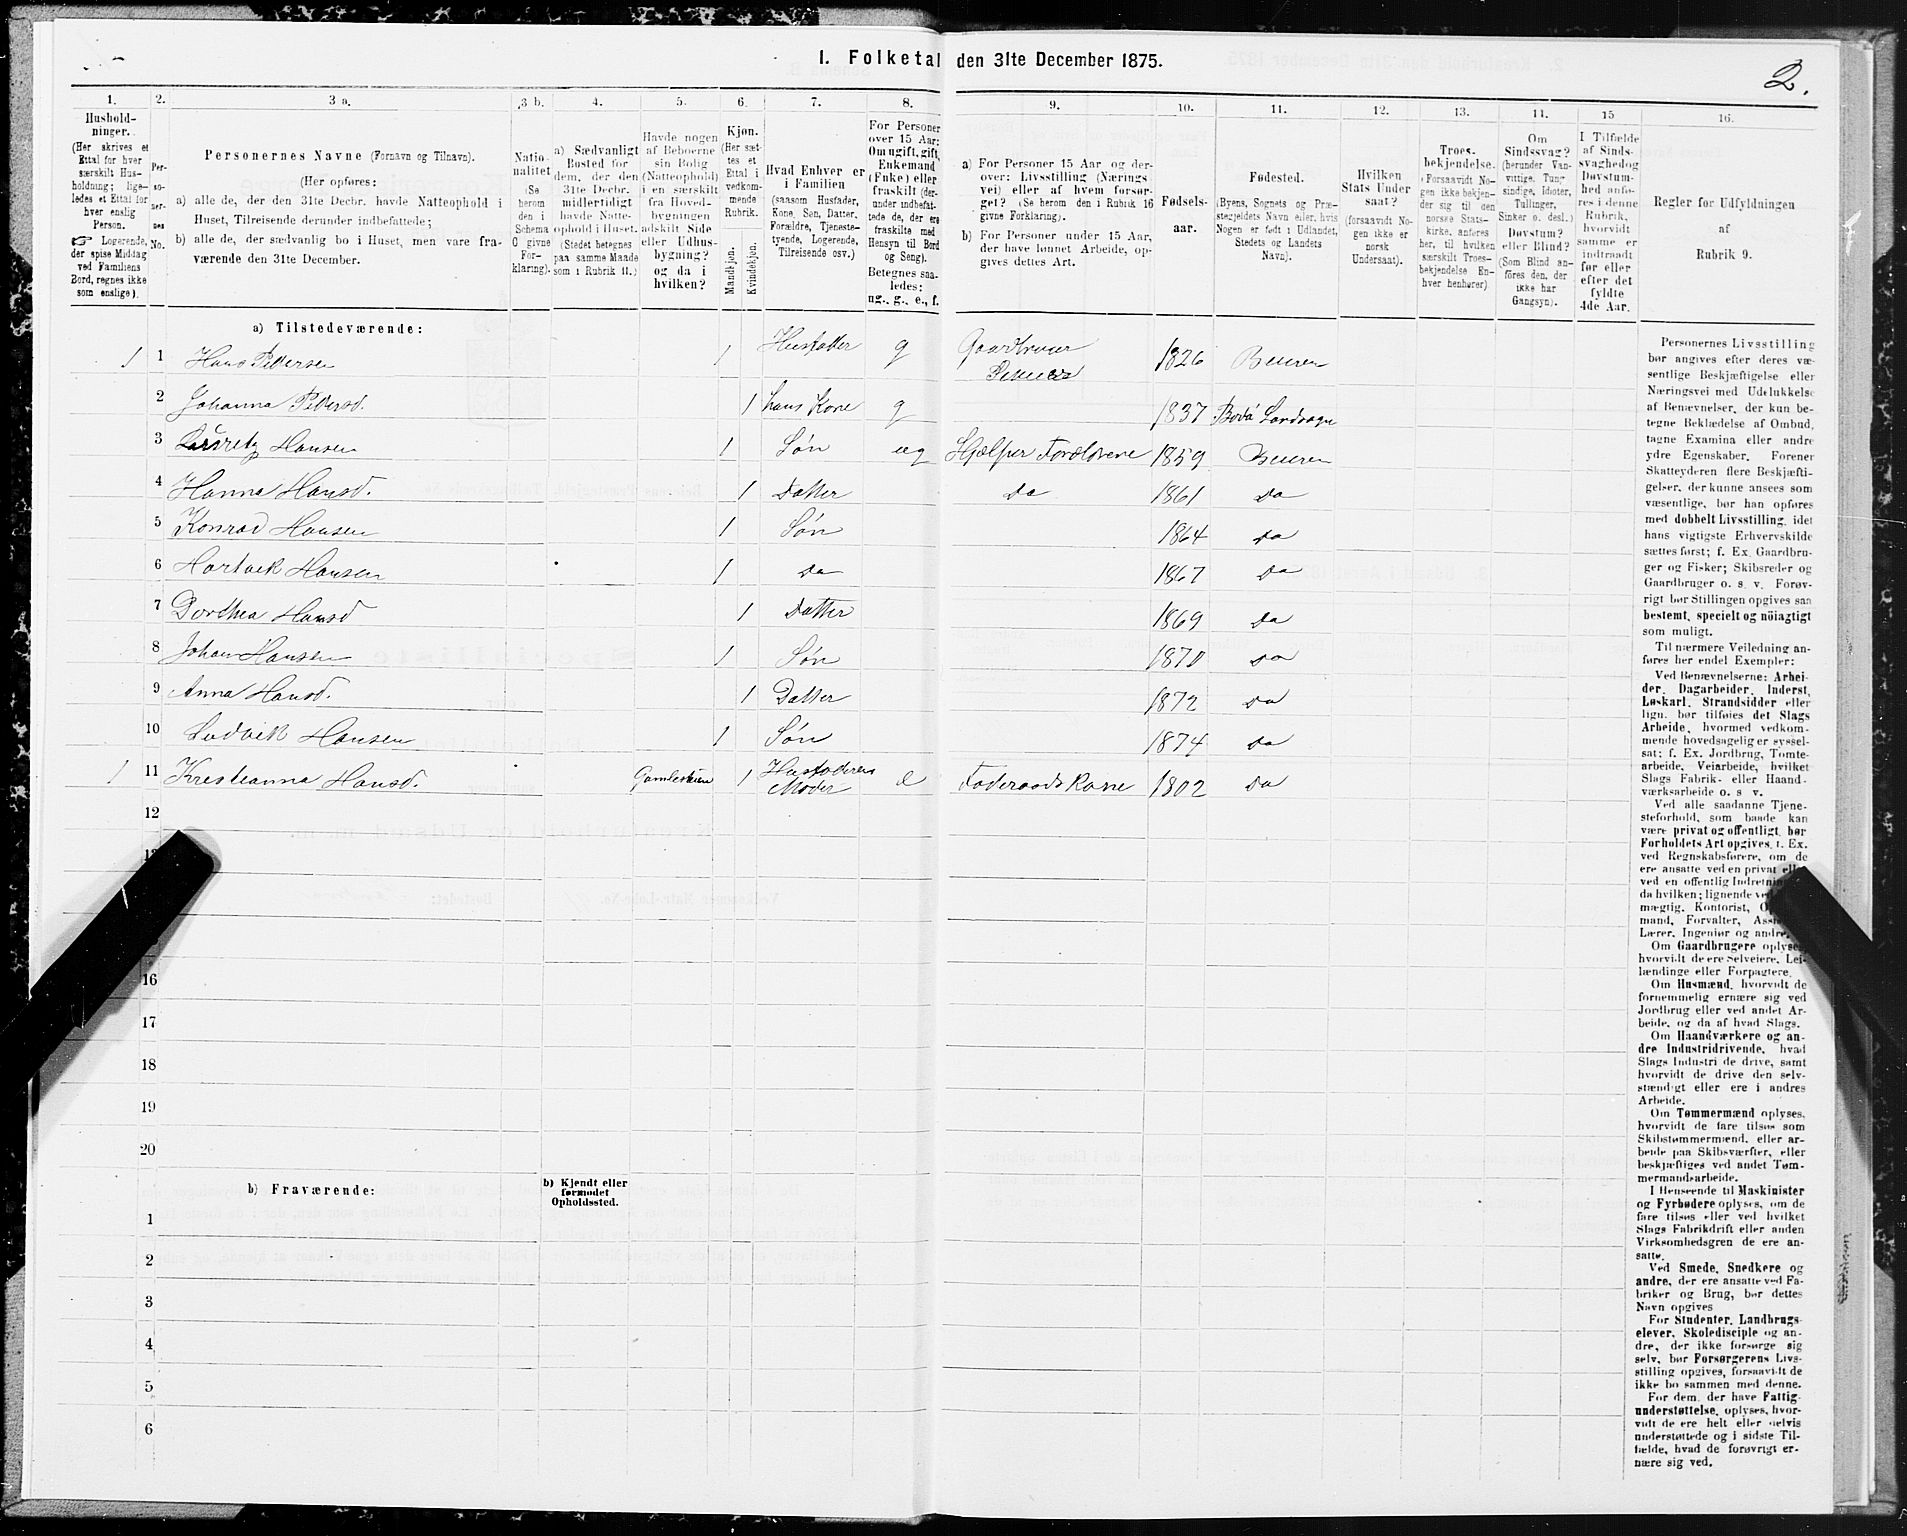 1. Folketal den 31te December 1875.
2.
1. 2. 3 a. 3 b. 4. 5. 6. 7. 8. 9. 10. 11. 12. 13. 14. 15 16.
Hushold-
ninger.
(Her skrives et
Ettal for hver
særskilt Hus-
holdning; lige-
ledes et Ettal for
hver enslig
Person.
☞ Logerende,
der spise Middag
ved Familiens
Bord, regnes ikke
som enslige).
Per-
so-
ner-
nes
No.
Personernes Navne (Fornavn og Tilnavn).
(Her opføres:
a) alle de, der den 31te Decbr. havde Natteophold i
Huset, Tilreisende derunder indbefattede;
b) alle de, der sædvanlig bo i Huset, men vare fra-
værende den 31te December.
Natio-
nalitet
(Se
herom
den i
Schema
C givne
For-
klaring).
a) Sædvanligt
Bosted for
dem, der den
31te Decbr.
midlertidigt
havde Natte-
ophold i Huset.
(Stedet betegnes
paa samme Maade
som i Rubrik 11.)
Havde nogen
af Beboerne
sin Bolig
(Natteophold)
i en særskilt
fra Hoved-
bygningen
adskilt Side
eller Udhus-
bygning?
og da i
hvilken?
Kjøn.
(Her sæt-
tes et
Ettal i
vedkom-
mende
Rubrik.
Mandkjøn.
Kvindekjøn.
Hvad Enhver er
i Familien
(saasom Husfader,
Kone, Søn, Datter,
Forældre, Tjeneste-
tyende, Logerende,
Tilreisende osv.)
For Personer
over 15 Aar:
Om ugift, gift,
Enkemand
(Enke) eller
fraskilt (der-
under indbefat-
tede de, der ere
fraskilte med
Hensyn til Bord
og Seng).
Betegnes saa-
ledes:
ug., g., e., f.
a) For Personer 15 Aar og der-
over: Livsstilling (Nærings-
vei) eller af hvem forsør-
get? (Se herom den i Rubrik 16
givne Forklaring).
b) For Personer under 15 Aar,
der have lønnet Arbeide, op-
gives dettes Art.
Fødsels-
aar.
Fødested.
(Byens, Sognets og Præ-
stegjeldets Navn eller, hvis
Nogen er født i Udlandet,
Stedets og Landets
Navn).
Hvilken
Stats Under
saat?
(forsaavidt No-
gen ikke er
norsk
Undersaat).
Troes-
bekjendelse.
(Forsaavidt No-
gen ikke bekjen-
der sig til den
norske Stats-
kirke, anføres
her, til hvilken
særskilt Troes-
bekjendelse En-
hver henhører)
Om
Sindssvag?
(herunder Van-
vittige, Tung-
sindige, Idioter,
Tullinger,
Sinker o. desl.)
Døvstum?
eller Blind?
(Som Blind an-
føres den, der
ikke har
Gangsyn).
I Tilfælde
af Sinds-
svaghed og
Døvstum-
hed anfø-
res i denne
Rubrik,
hvorvidt
samme er
indtraadt
før eller
efter det
fyldte
4de Aar.
Regler for Udfyldningen
af
Rubrik 9.
a) Tilstedeværende:
1 1 Hans Pedersen 1 Husfader g Gaardbruger 1826 Beieren
2 Johanna Pedersd. 1 hans Kone g 1837 Bodö Landsogn
3 Lauretz Hansen 1 Søn ug Hjælper Forældrene 1859 Beieren
4 Hanna Hansd. 1 Datter Do 1861 Do
5 Konrad Hansen 1 Søn 1864 Do
6 Hartvik Hansen 1 Do 1867 Do
7 Dorthea Hansd 1 Datter 1869 Do
8 Johan Hansen 1 Søn 1870 Do
9 Anna Hansd. 1 Datter 1872 Do
10 Ludvik Hansen 1 Søn 1874 Do
1 11 Kristianna Hansd. Gamlestuen 1 Husfaderens Moder e Foderaads Kone 1802 Do
12
16
17
18
19
20
b) Fraværende:
b) Kjendt eller
formodet
Opholdssted.
1
2
3
4
5
6
Personernes Livsstilling
bør angives efter deres væ-
sentlige Beskjæftigelse eller
Næringsvei med Udelukkelse
af Benævnelser, der kun be-
tegne Beklædelse af Ombud,
tagne Examina eller andre
ydre Egenskaber. Forener
Skatteyderen flere Beskjæfti-
gelser, der kunne ansees som
væsentlige, bør han opføres
med dobbelt Livsstilling, idet
hans vigtigste Erhvervskilde
sættes først; f. Ex. Gaardbru-
ger og Fisker; Skibsreder og
Gaardbruger o. s. v. Forøv-
rigt bør Stillingen opgives saa
bestemt, specielt og nöiagtigt
som muligt.
Til nærmere Veiledning an-
føres her endel Exempler:
Ved Benævnelserne: Arbei-
der, Dagarbeider, Inderst,
Løskarl, Strandsidder eller
lign. bør tilføies det Slags
Arbeide, hvormed vedkom-
mende hovedsagelig er syssel-
sat; f. Ex. Jordbrug, Tomte-
arbeide, Veiarbeide, hvilket
Slags Fabrik- eller Haand-
værksarbeide o. s v.
Ved alle saadanne Tjene-
steforhold, som baade kan
være privat og offentligt, bør
Forholdets Art opgives, f. Ex.
ved Regnskabsførere, om de
ere ansatte ved en privat
ved en offentlig
da hvilken; lignende
mægtig, Kontorist,
mand, Forvalter,
Lærer, Ingeniør og andre.
Om Gaardbrugere oplyses,
hvorvidt de ere Selveiere, Lei-
lændinge eller Forpagtere.
Om Husmænd, hvorvidt de
fornemmelig ernære sig ved
Jordbrug eller ved andet Ar-
beide, og da af hvad Slags.
Om Haandværkere og an-
dre Industridrivende, hvad
Slags Industri de drive, samt
hvorvidt de drive den selv-
stændigt eller ere i andres
Arbeide.
Om Tømmermænd oplyses,
hvorvidt de fare tilsøs som
Skibstømmermænd, eller ar-
beide paa Skibsværfter, eller
beskjæftiges ved andet Tøm-
mermandsarbeide.
I Henseende til Maskinister
og Fyrbødere oplyses, om de
fare tilsøs eller ved hvilket
Slags Fabrikdrift eller anden
Virksomhedsgren de ere an-
satte.
Ved Smede, Snedkere og
andre, der ere ansatte ved Fa-
briker og Brug, bør dettes
Navn opgives
For Studenter, Landbrugs-
elever, Skoledisciple og an-
dre, der ikke forsørge sig
selv, bør Forsørgerens Livs-
stilling opgives, forsaavidt de
ikke bo sammen med denne.
For dem, der have Fattig-
understøttelse, oplyses, hvor-
vidt de ere helt eller delvis
understøttede og i sidste Til-
fælde, hvad de forøvrigt er-
nære sig ved.